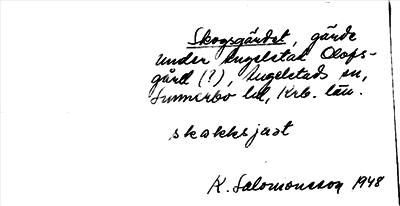 Skogsgärdet, gärde
under Angelstad Olofs-
gård (?), Angelstads sn,
Sunnerbo hd, Krb. län.
skokksjaat
K. Salomonsson 1948